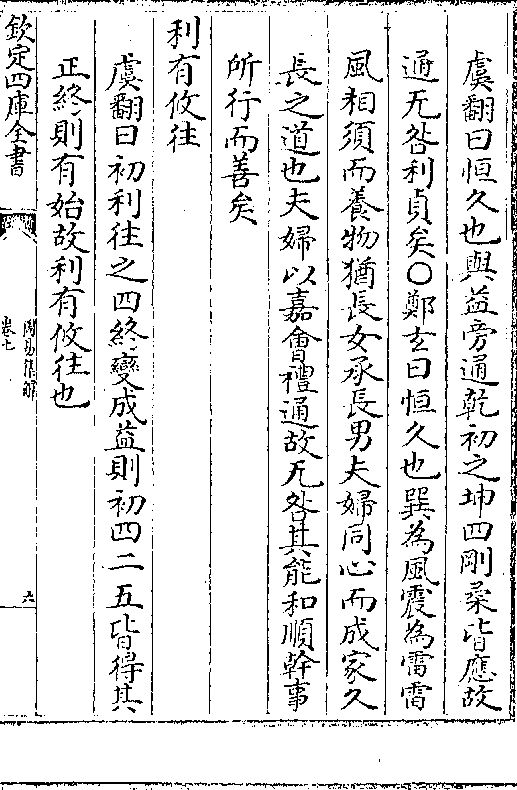 虞翻曰恒久也與益旁通乾初之坤四剛柔皆應故
通无咎利貞矣○鄭玄曰恒久也巽為風震為雷雷
風相須而養物猶長女承長男夫婦同心而成家久
長之道也夫婦以嘉會禮通故无咎其能和順幹事
所行而善矣
利有攸往
虞翻曰初利往之四終變成益則初四二五皆得其
正終則有始故利有攸往也
欽定四庫全書
周易集解
卷七
六